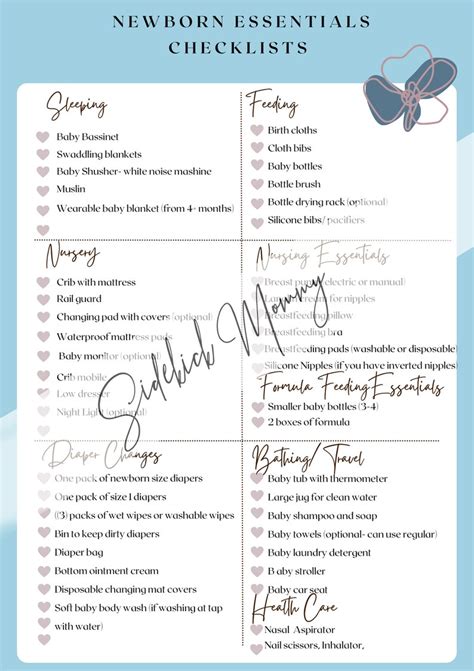 NEWBORN ESSENTIALS
CHECKLISTS
Sleeping
Baby Bassinet
Swaddling blankets
Baby Shusher- white noise mashine
Muslin
Wearable baby blanket (from 4+ months)
Feeding
Birth cloths
Cloth bibs
Baby bottles
Bottle brush
Bottle drying rack (optional)
Silicone bibs/ pacifiers
Nursery
Crib with mattress
Rail guard
Changing pad with covers (optional)
Waterproof mattress pads
Baby monitor (optional)
Crib mobile
Low dresser
Night Light (optional)
Nursing Essentials
Breast pump (electric or manual)
cream for nipples
Breastfeeding pillow
Breastfeeding bra
Breastfeeding pads (washable or disposable)
Silicone Nipples (if you have inverted nipples)
Formula Feeding Essentials
Smaller baby bottles (3-4)
2 boxes of formula
Sidekick Mommy
Diaper Changes
One pack of newborn size diapers
One pack of size 1 diapers
((3) packs of wet wipes or washable wipes
Bin to keep dirty diapers
Diaper bag
Bottom ointment cream
Disposable changing mat covers
Soft baby body wash (if washing at tap
with water)
Bathing/ Travel
Baby tub with thermometer
Large jug for clean water
Baby shampoo and soap
Baby towels (optional- can use regular)
Baby laundry detergent
B aby stroller
Baby car seat
Health Care
Nasal Aspirator
Nail scissors, Inhalator,